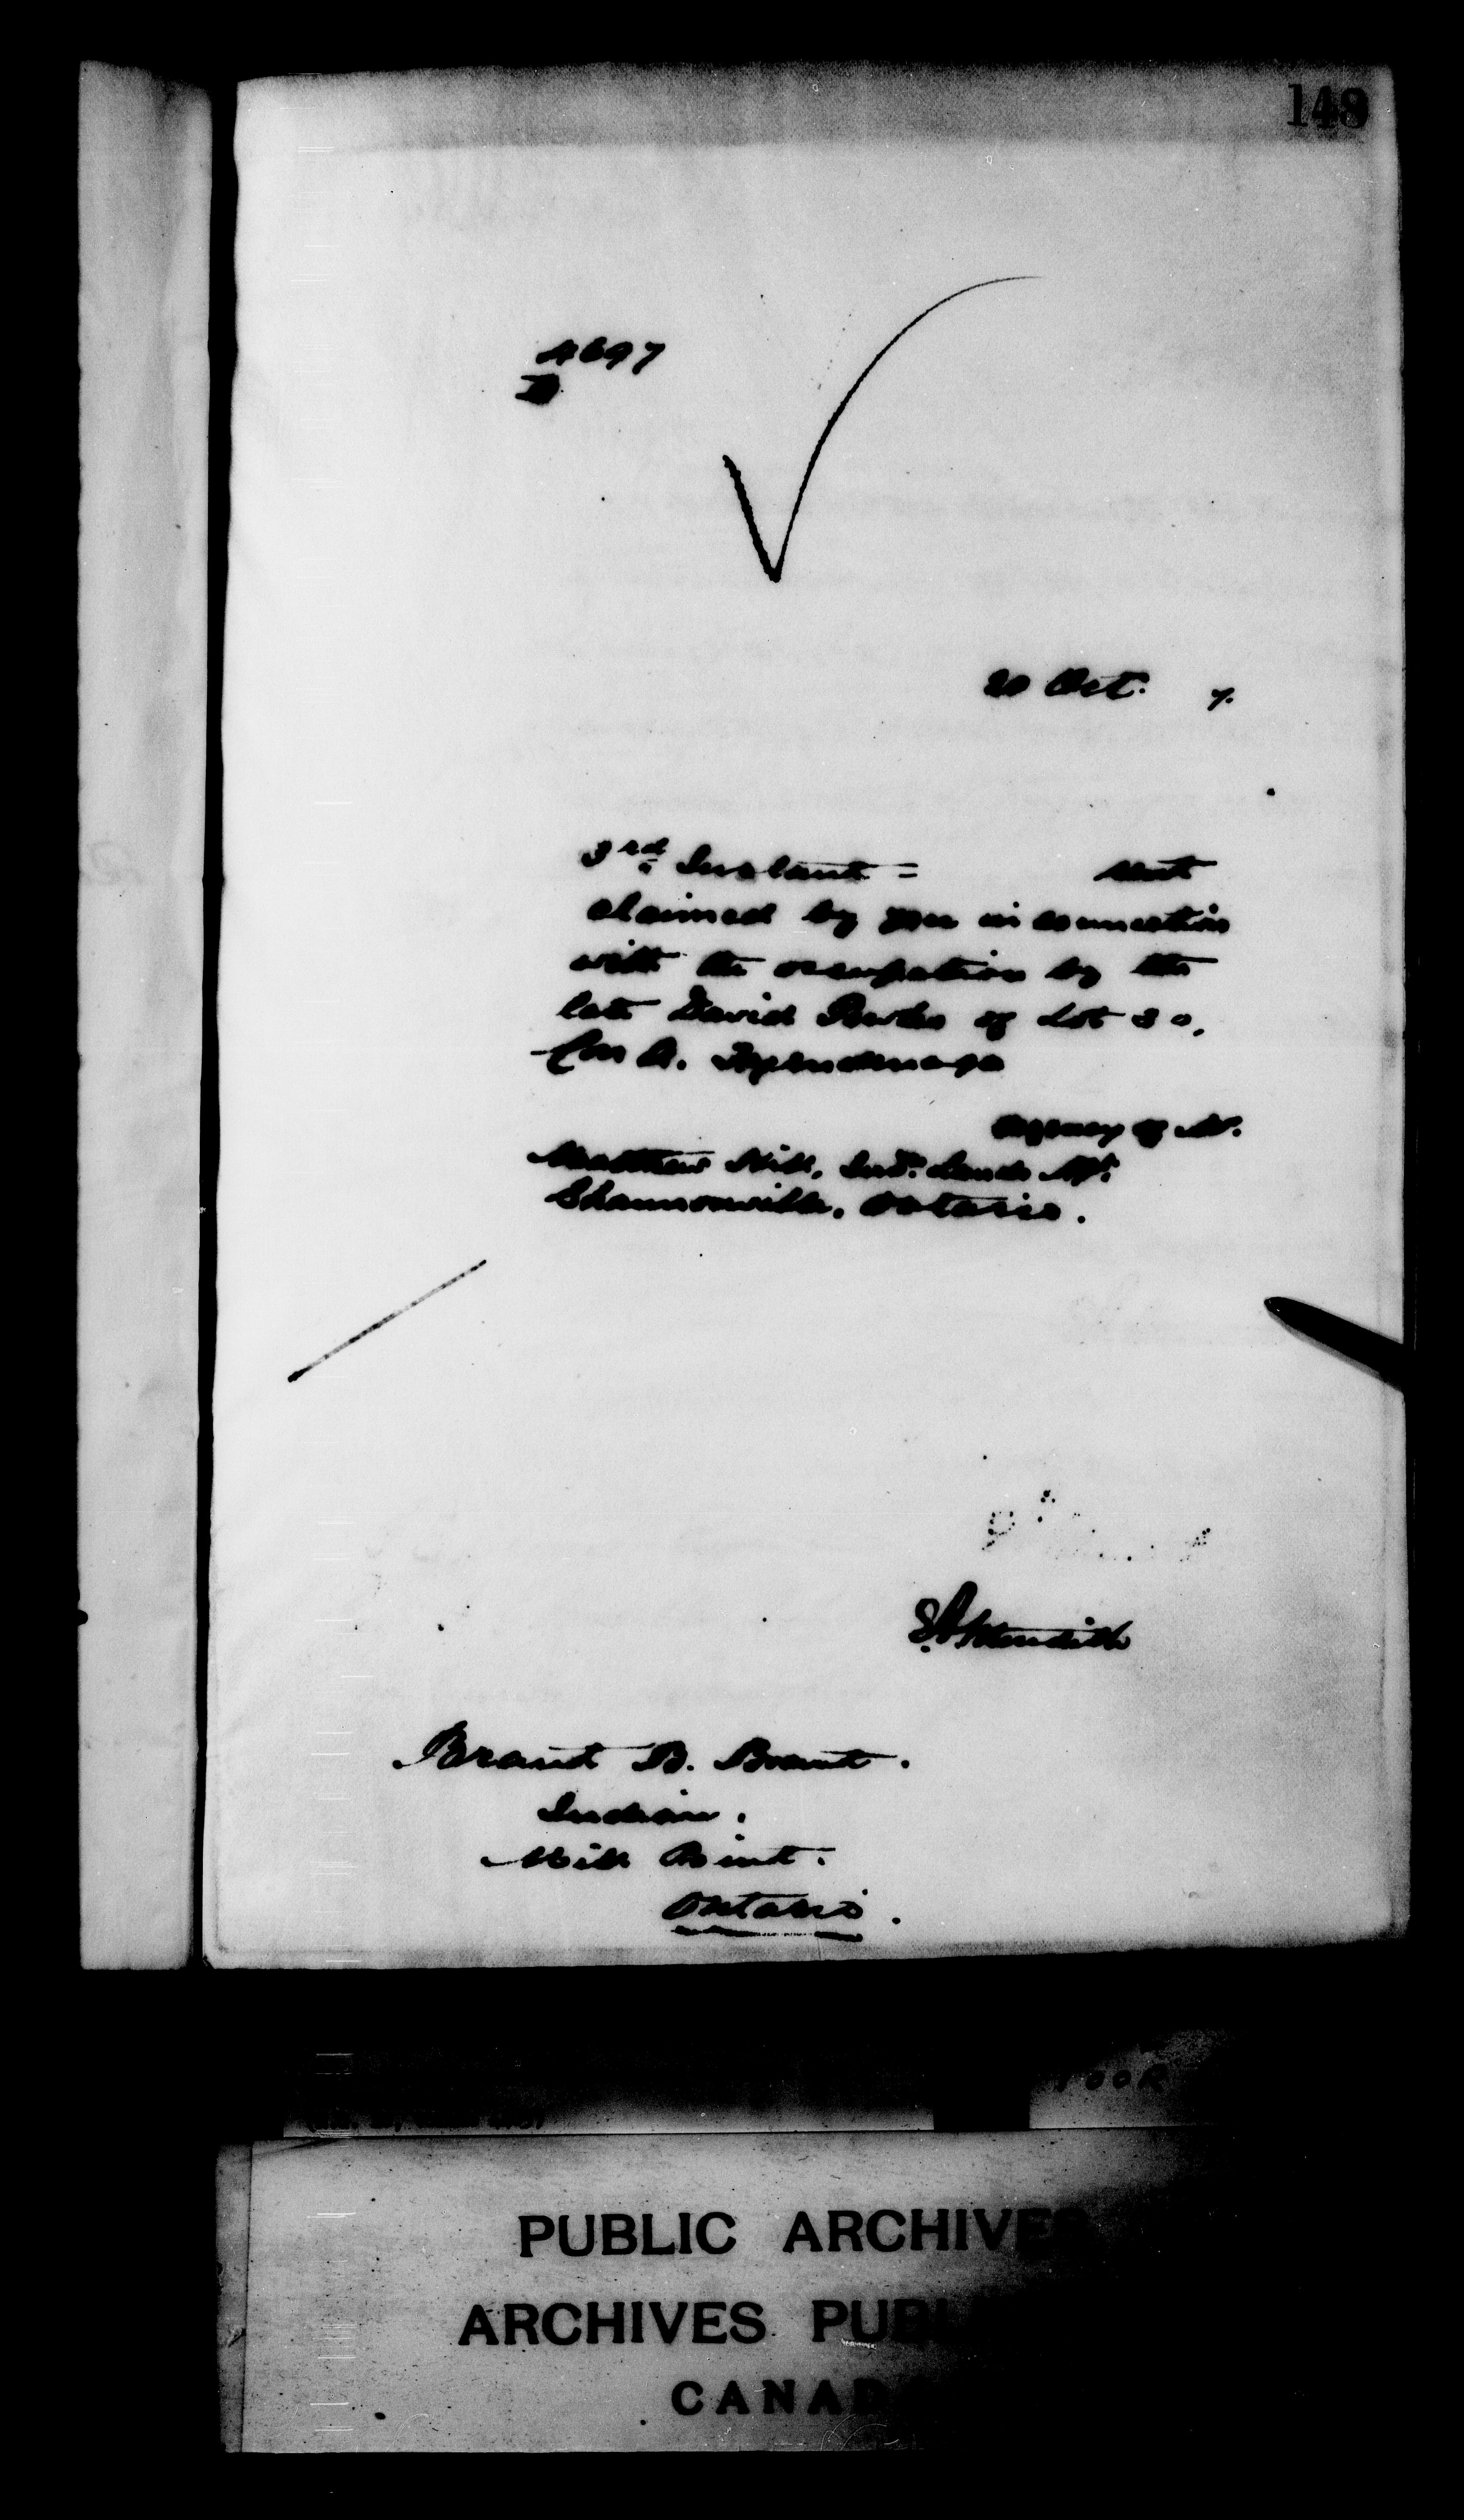 148
4697
D
20 Oct. 7.
3rd Instant = rent
claimed by you in connection
with the occupation by the
late David Powles of Lot 30,
Con A. Tyendenaga
Agency of Mr.
Matthew Hill, Ind. Lands Agt.
Shannonville, Ontario.
E.A. Meredith
Brant B. Brant.
Indian.
Mill Point.
Ontario.
POOR
PUBLIC ARCHIVES
ARCHIVES PUBL
CANAD